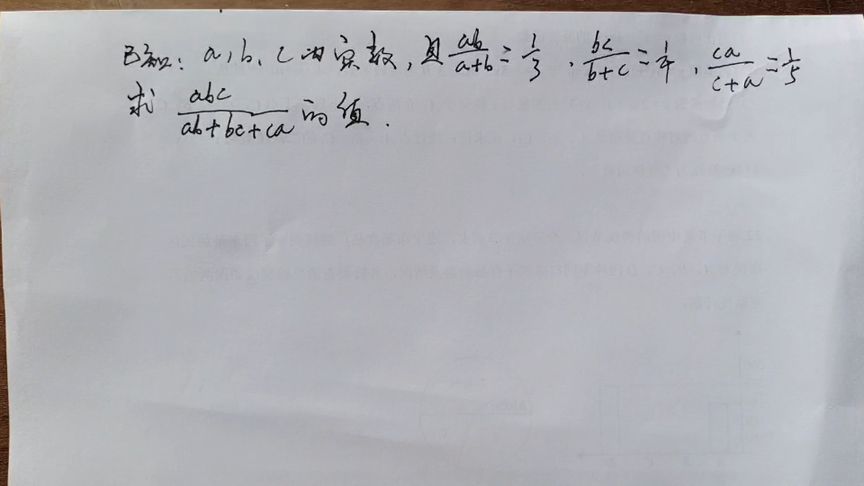 已知：a、b、c为实数，且ab/(a+b)=1/3，bc/(b+c)=1/4，ca/(c+a)=1/5
求 abc/(ab+bc+ca) 的值.